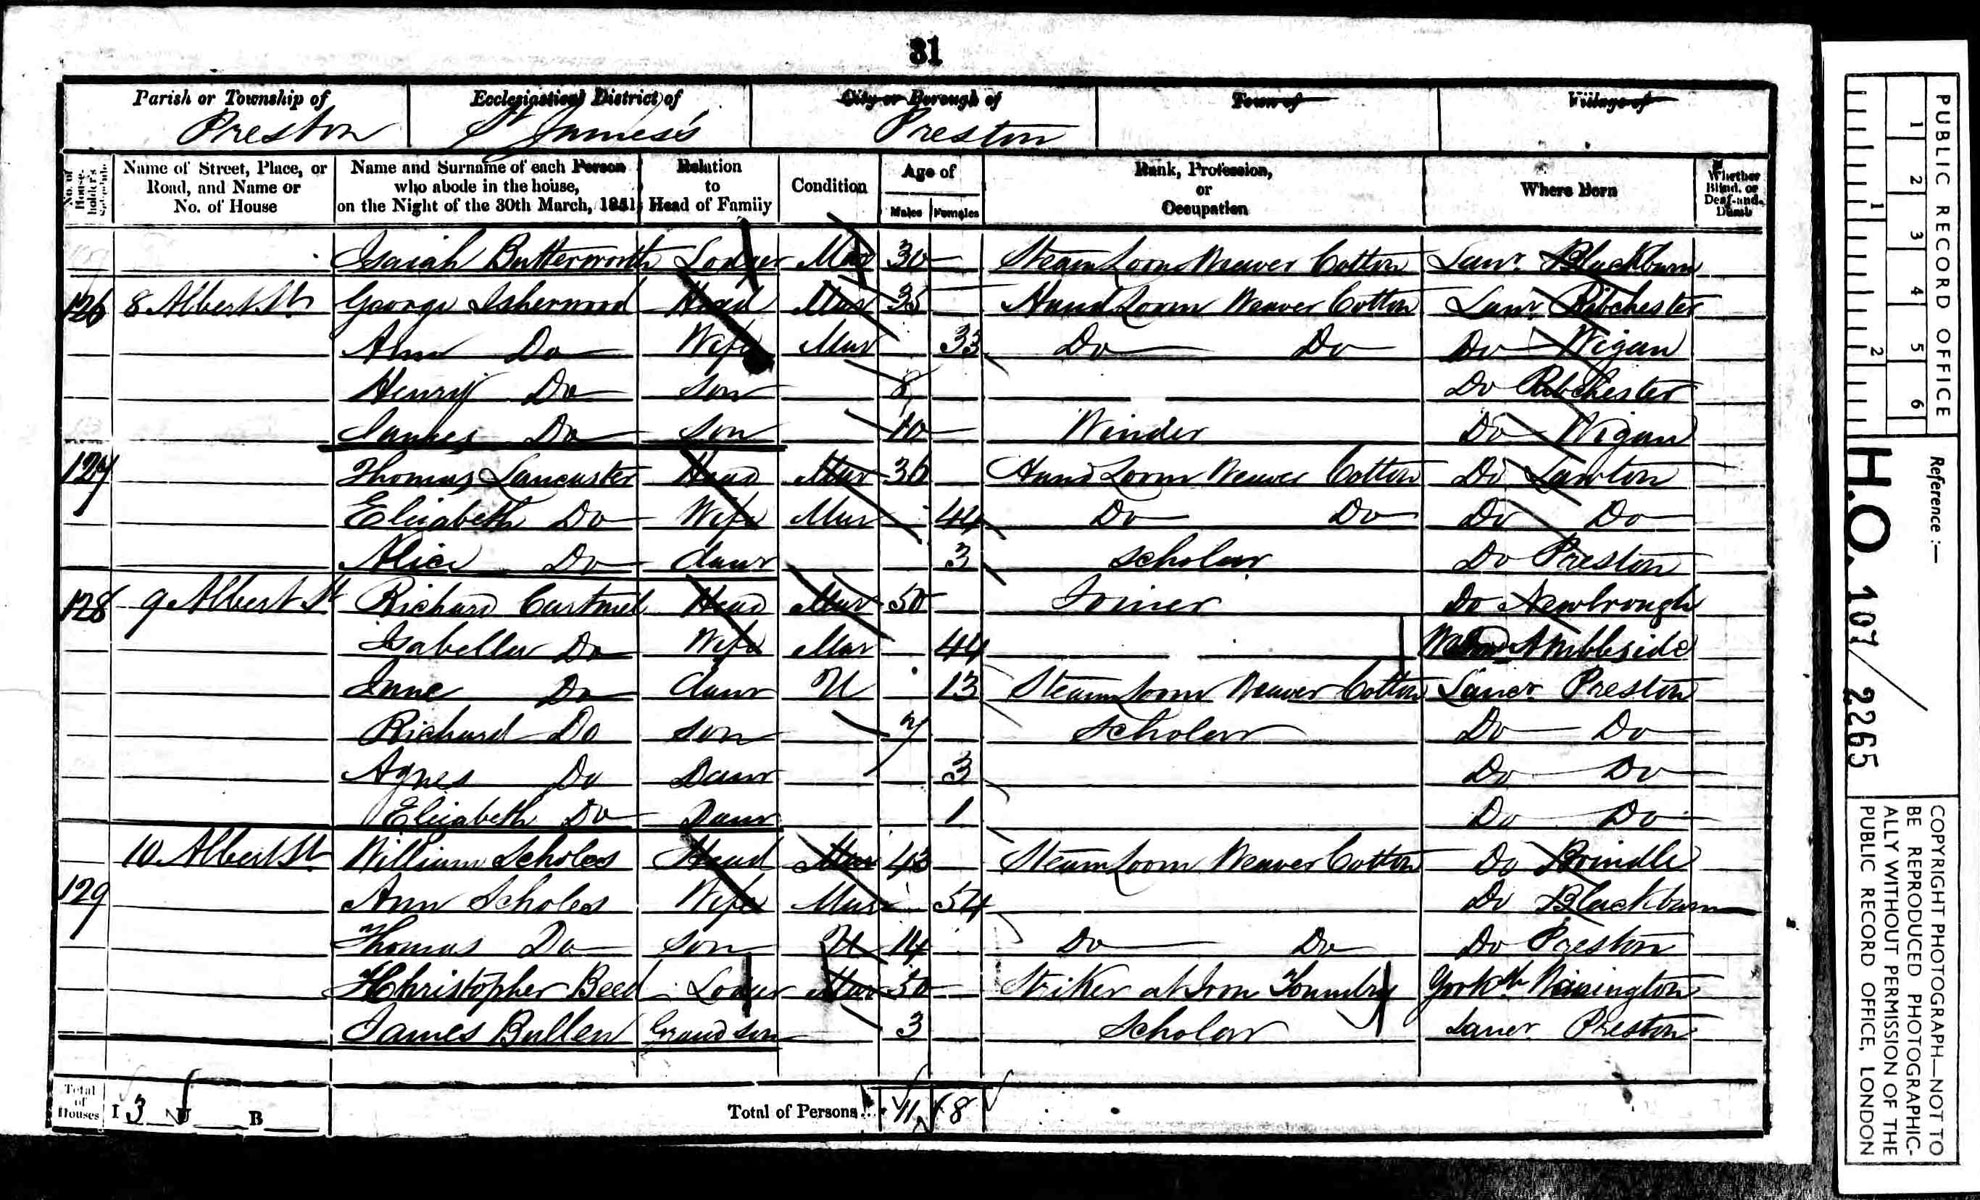 31
Parish or Township of Ecclesiastical District of City or Borough of Town of Village of
Preston St James's Preston
No. of House-holder's Schedule Name of Street, Place, or Road, and Name or No. of House Name and Surname of each Person who abode in the house, on the Night of the 30th March, 1851 Relation to Head of Family Condition Age of Males Females Rank, Profession, or Occupation Where Born Whether Blind, or Deaf-and-Dumb
Isaiah Butterworth Lodger Mar 30 Steam Loom Weaver Cotton Lanr. Blackburn
126 8 Albert St. George Isherwood Head Mar 35 Hand Loom Weaver Cotton Lanr. Ribchester
Ann Do Wife Mar 33 Do Do Do Wigan
Henry Do son 8 Do Ribchester
James Do son 10 Winder Do Wigan
127 Thomas Lancaster Head Mar 36 Hand Loom Weaver Cotton Do Lawton
Elizabeth Do Wife Mar 44 Do Do Do Do
Alice Do daur 3 scholar Do Preston
128 9 Albert St Richard Cartmel Head Mar 50 Joiner Do Newbrough
Isabella Do Wife Mar 44 Ambleside
Jane Do daur U 13 Steam Loom Weaver Cotton Lancr Preston
Richard Do son 7 scholar Do Do
Agnes Do Daur 3 Do Do
Elizabeth Do Daur 1 Do Do
10 Albert St. William Scholes Head Mar 43 Steam Loom Weaver Cotton Do Brindle
129 Ann Scholes Wife Mar 54 Do Blackburn
Thomas Do son U 14 Do Do Do Preston
Christopher Beed Lodger Mar 50 Striker at Iron Foundry Yorksh
James Bullen Grandson 3 Scholar Lancr Preston
Total of Houses I 3 U B Total of Persons 11 8
PUBLIC RECORD OFFICE
1 2 3 4 5 6
1 2
Reference :-
H.O. 107/2265
COPYRIGHT PHOTOGRAPH—NOT TO
BE REPRODUCED PHOTOGRAPHIC-
ALLY WITHOUT PERMISSION OF THE
PUBLIC RECORD OFFICE, LONDON